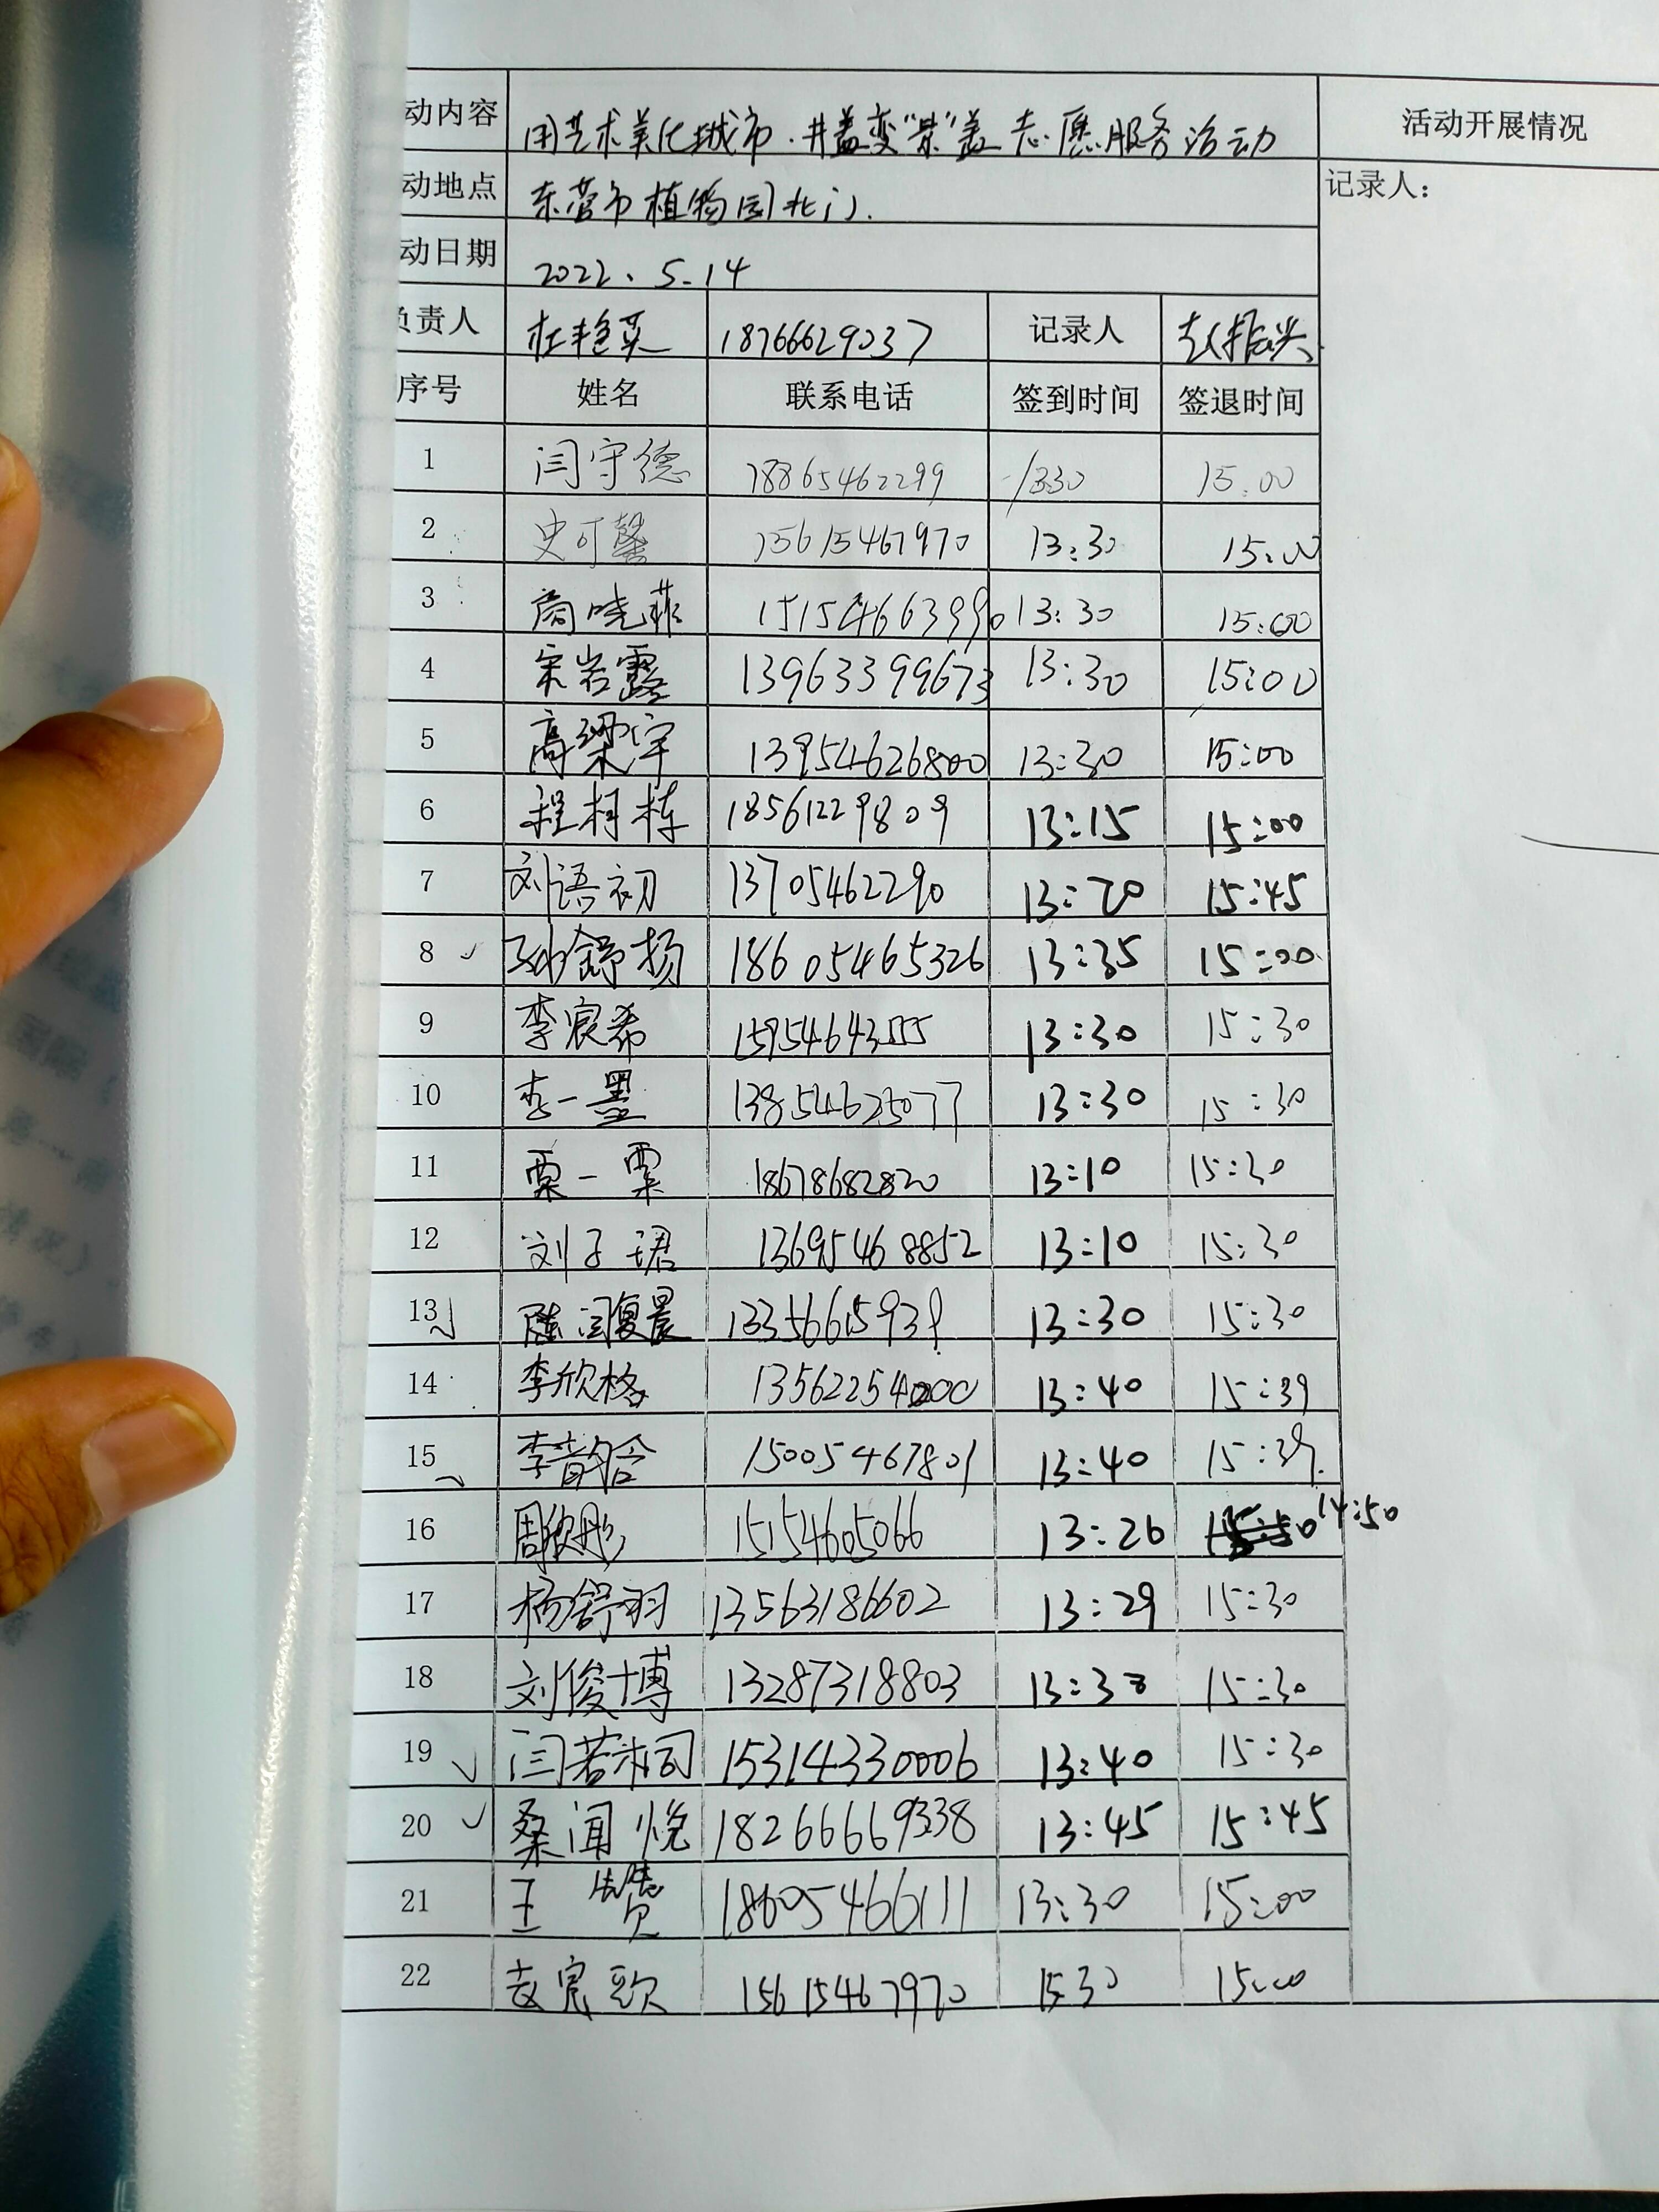 动内容 用艺术美化城市·井盖变"景"盖志愿服务活动 活动开展情况
动地点 东营市植物园北门. 记录人：
动日期 2022、5.14
负责人 杜艳英 18766629037 记录人 赵振兴
序号 姓名 联系电话 签到时间 签退时间
1 闫守德 18865462299 1330 15:00
2 史可馨 15615467970 13:30 15:00
3 商晓菲 15154663990 13:30 15:00
4 宋岩露 13963399673 13:30 15:00
5 高梁宇 13954626800 13:30 15:00
6 程柯栋 18561229809 13:15 15:00
7 刘语初 13705462290 13:20 15:45
8 孙舒扬 18605465326 13:35 15:00
9 李宸希 15954643555 13:30 15:30
10 李一墨 13854625077 13:30 15:30
11 栗一栗 18678682820 13:10 15:30
12 刘子珺 13695468852 13:10 15:30
13 陈闫夏晨 13356615939 13:30 15:30
14 李欣格 13562254000 13:40 15:39
15 李韵含 15005467801 13:40 15:39.
16 周欣彤 15154605066 13:26 14:50
17 杨舒羽 13563186602 13:29 15:30
18 刘俊博 13287318803 13:38 15:30
19 闫若桐 15314330006 13:40 15:30
20 桑闻悦 18266669338 13:45 15:45
21 王赞 18605466111 13:30 15:00
22 15615467970 1530 15:00